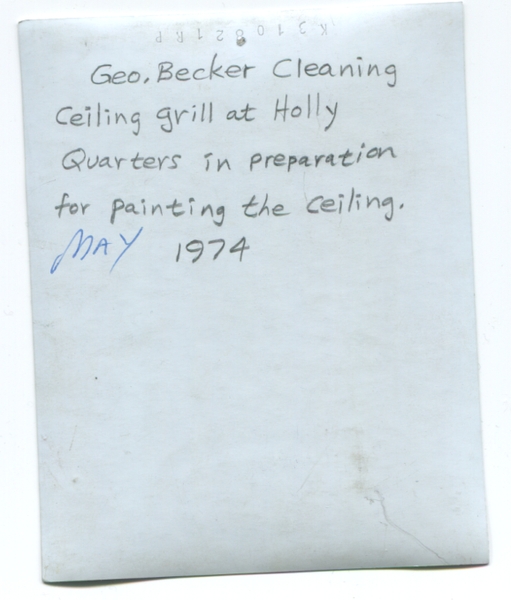 Geo. Becker Cleaning
Ceiling grill at Holly
Quarters in preparation
for painting the ceiling.
MAY 1974